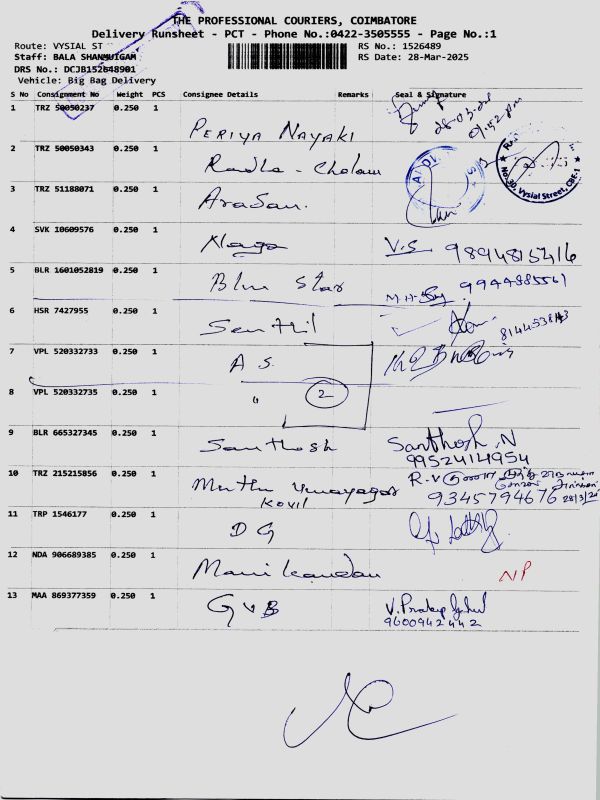 THE PROFESSIONAL COURIERS, COIMBATORE
Delivery Runsheet - PCT - Phone No.:0422-3505555 - Page No.:1
Route: VYSIAL ST
RS No.: 1526489
Staff: BALA SHANMUIGAM
RS Date: 28-Mar-2025
DRS No.: DCJB152648901
Vehicle: Big Bag Delivery
S No Consignment No Weight PCS Consignee Details Remarks Seal & Signature
1 TRZ 50050237 0.250 1 PERIYA NAYAKI
2 TRZ 50050343 0.250 1 Radha -
No.30, Vysial Street, CBE-1
3 TRZ 51188071 0.250 1 Arasan.
4 SVK 10609576 0.250 1 V.S
5 BLR 1601052819 0.250 1 Blue Star
6 HSR 7427955 0.250 1 Senthil
7 VPL 520332733 0.250 1 A S.
8 VPL 520332735 0.250 1 " 2
9 BLR 665327345 0.250 1 Santhosh Santhosh.N
9952414954
10 TRZ 215215856 0.250 1 Muthu Vinayagar R.V
Kovil 9345794676
11 TRP 1546177 0.250 1 D G
12 NDA 906689385 0.250 1 Manikandan NP
13 MAA 869377359 0.250 1 G V B V.Pratap
9600942442